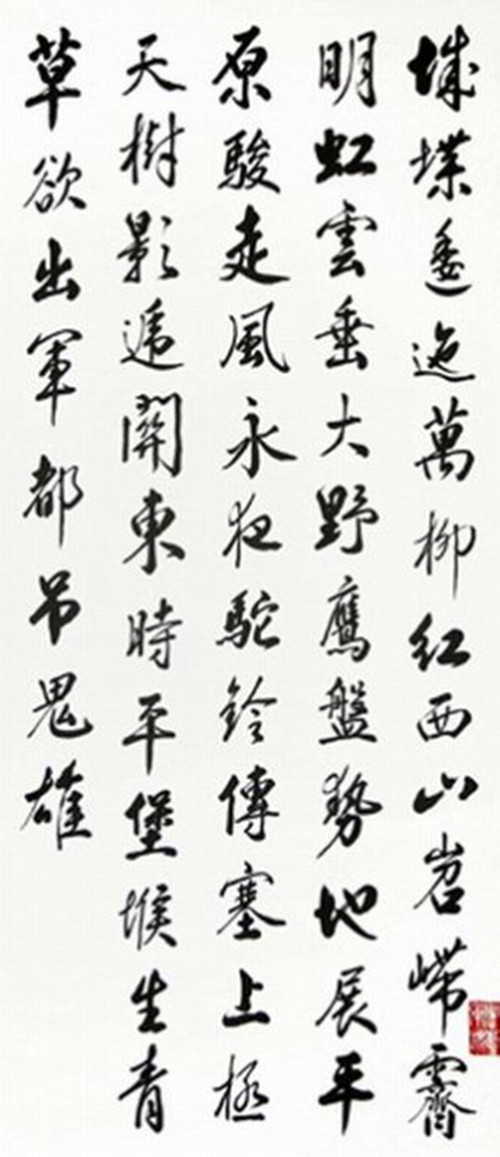 城堞逶迤萬柳紅西山岧嵽霽
明虹雲垂大野鷹盤勢地展平
原駿走風永夜駝鈴傳塞上極
天樹影遞關東時平堡堠生青
草欲出軍都吊鬼雄